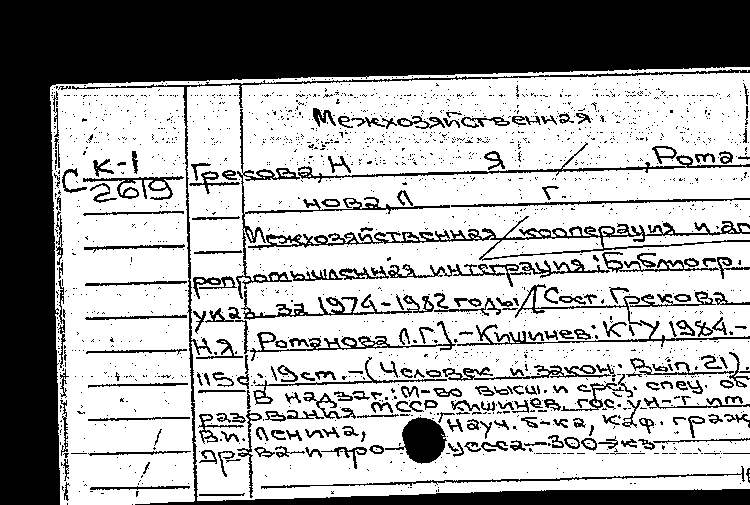 Межхозяйственная.
К-1
С 2619
Грекова, Н Я , Рота-
нова, Л Г.
Межхозяйственная кооперация и аг
ропромышленная интеграция: Библиогр.
указ. за 1974-1982 годы/[Сост. Грекова
Н.Я , Ротанова Л.Г.].-Кишинев: КГУ, 1984.-
115с.; 19см.-(Человек и закон; Вып. 21).
В надзаг.: М-во высш. и сред. спец. об
разования МССР, Кишинев. гос. ун-т им
В.И. Ленина, Науч. б-ка, Каф. граж
права и про- цесса.-300 экз.